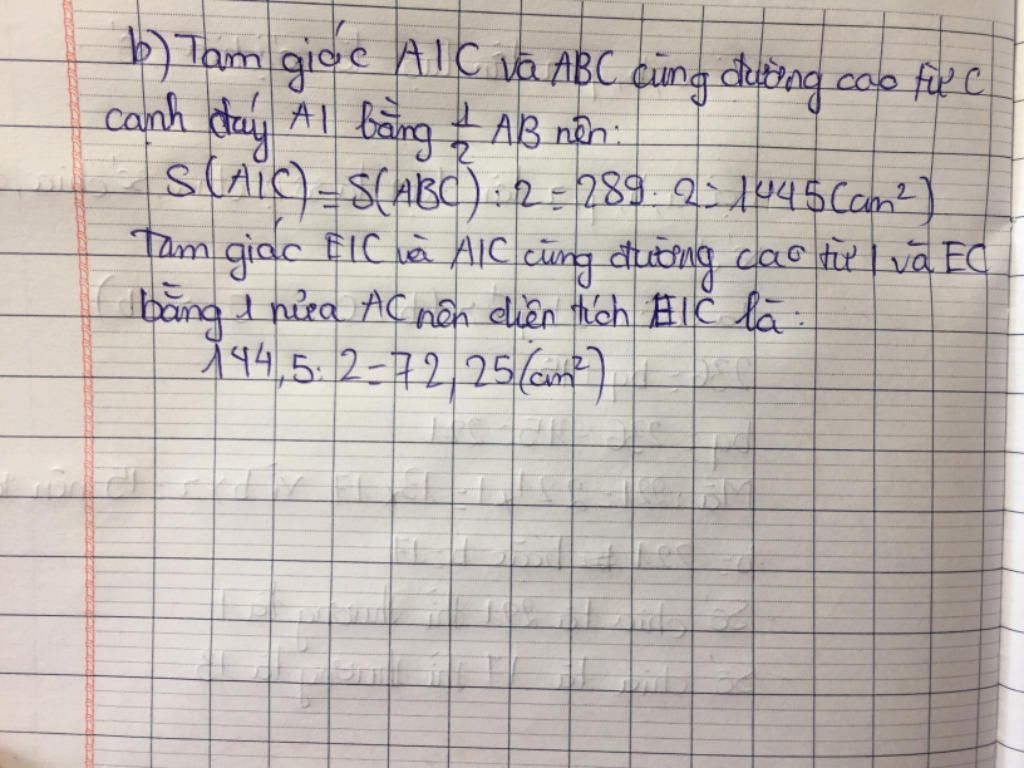 b) Tam giác AIC và ABC cùng đường cao từ C
cạnh đáy AI bằng 1/2 AB nên:
S(AIC) = S(ABC) : 2 = 289 : 2 = 1445 (cm²)
Tam giác EIC và AIC cùng đường cao từ I và EC
bằng 1 nửa AC nên diện tích EIC là:
144,5 : 2 = 72,25 (cm²)